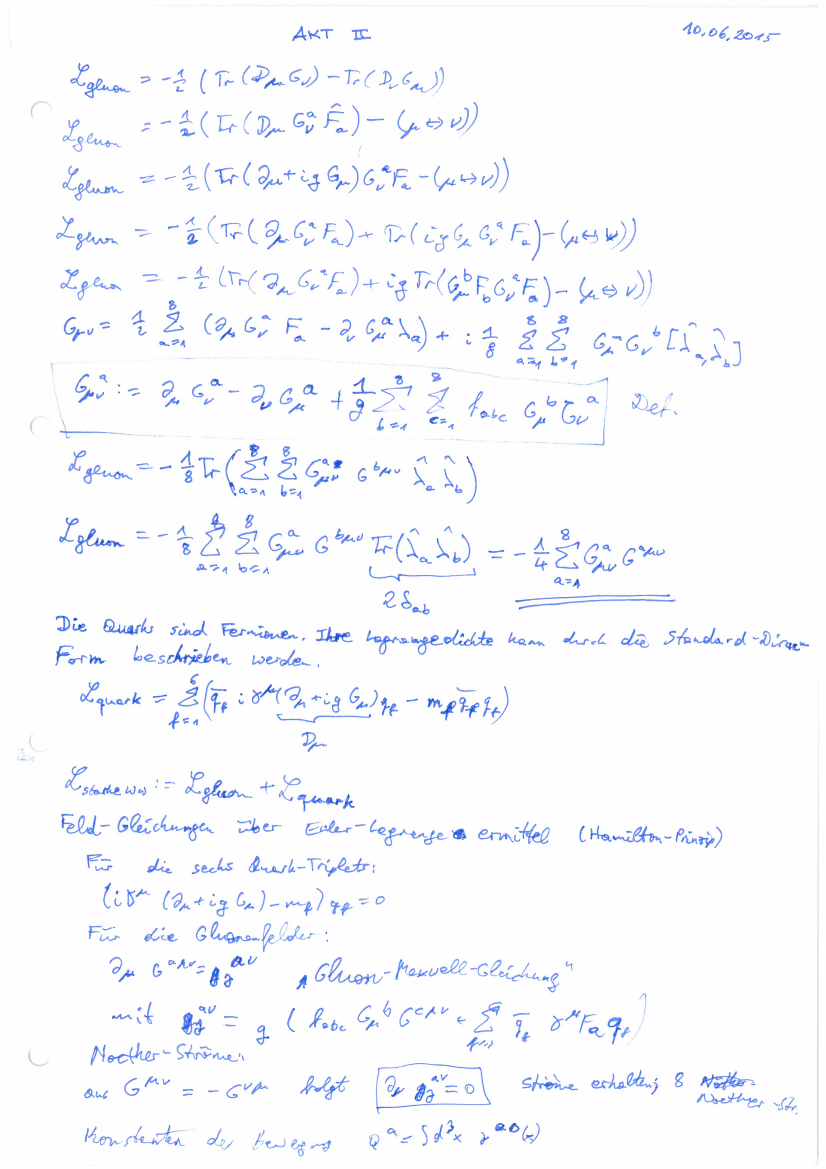 AKT II 10.06.2015
L_gluon = -1/2 (Tr(D_μ G_ν) - Tr(D_ν G_μ))
L_gluon = -1/2 (Tr(D_μ G_ν^a F̂_a) - (μ↔ν))
L_gluon = -1/2 (Tr(∂_μ + ig G_μ) G_ν^a F_a - (μ↔ν))
L_gluon = -1/2 (Tr(∂_μ G_ν^a F_a) + Tr(ig G_μ G_ν^a F_a) - (μ↔ν))
L_gluon = -1/2 (Tr(∂_μ G_ν^a F_a) + ig Tr(G_μ^b F_b G_ν^a F_a) - (μ↔ν))
G_μν = 1/2 Σ_{a=1}^{8} (∂_μ G_ν^a F_a - ∂_ν G_μ^a λ_a) + i 1/8 Σ_{a=1}^{8} Σ_{b=1}^{8} G_μ^a G_ν^b [λ̂_a, λ̂_b]
G_μν^a := ∂_μ G_ν^a - ∂_ν G_μ^a + 1/g Σ_{b=1}^{8} Σ_{c=1}^{8} f_abc G_μ^b G_ν^a Def.
L_gluon = -1/8 Tr(Σ_{a=1}^{8} Σ_{b=1}^{8} G_μν^a G^{bμν} λ̂_a λ̂_b)
L_gluon = -1/8 Σ_{a=1}^{8} Σ_{b=1}^{8} G_μν^a G^{bμν} Tr(λ̂_a λ̂_b) = -1/4 Σ_{a=1}^{8} G_μν^a G^{aμν}
2δ_ab
Die Quarks sind Fermionen. Ihre Lagrangedichte kann durch die Standard-Dirac-
Form beschrieben werden.
L_quark = Σ_{f=1}^{6} (q̄_f i γ^μ (∂_μ + ig G_μ) q_f - m_f q̄_f q_f)
D_μ
L_starke WW := L_gluon + L_quark
Feld-Gleichungen über Euler-Lagrange ermittel (Hamilton-Prinzip)
Für die sechs Quark-Triplets:
(iγ^μ (∂_μ + ig G_μ) - m_f) q_f = 0
Für die Gluonenfelder:
∂_μ G^{aμν} = j^{aν} „Gluon-Maxwell-Gleichung"
mit j^{aν} = g (f_abc G_μ^b G^{cμν} + Σ_{f=1} q̄_f γ^μ F_a q_f)
Noether-Ströme:
aus G^{μν} = -G^{νμ} folgt ∂_ν j^{aν} = 0 Ströme erhalten; 8 Noether-Str.
Konstanten der Bewegung Q^a = ∫d³x j^{a0}(x)